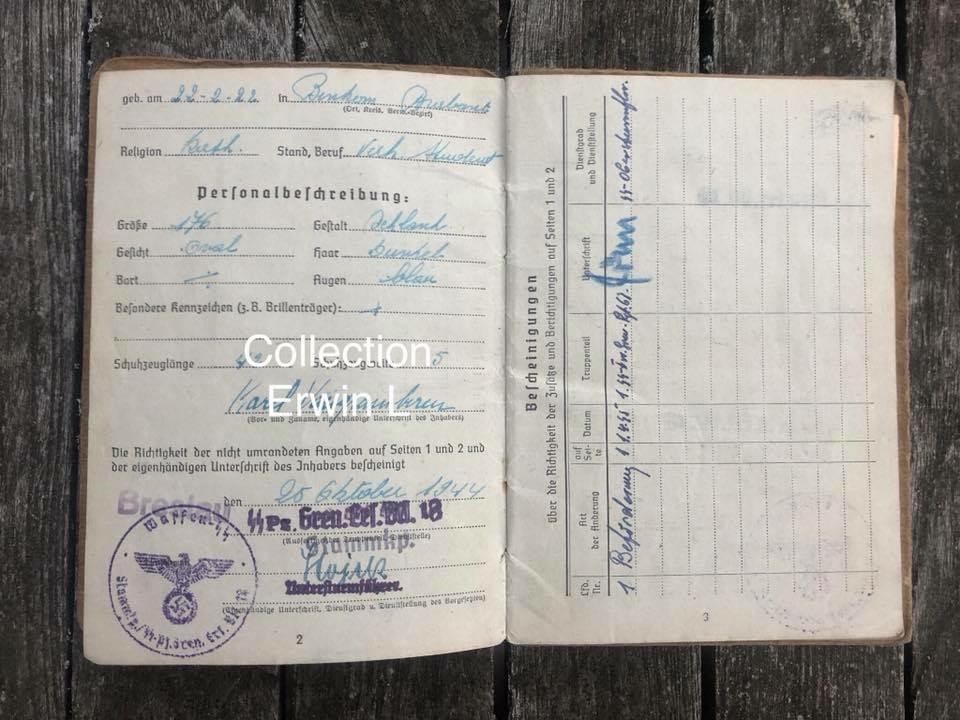 geb. am 22-2-22 in Binkom Brabant
(Ort, Kreis, Verw.-Bezirk)
Religion Kath. Stand, Beruf Student
Personalbeschreibung:
Größe 176 Gestalt Schlank
Gesicht Oval Haar Dunkel
Bart Augen blau
Besondere Kennzeichen (z.B. Brillenträger):
Schuhzeuglänge 42 5
Collection
Erwin L
Karel
(Vor- und Zuname, eigenhändige Unterschrift des Inhabers)
Die Richtigkeit der nicht umrandeten Angaben auf Seiten 1 und 2 und
der eigenhändigen Unterschrift des Inhabers bescheinigt
Breslau den 25 Oktober 1944
SS Pz. Gren. Ers. Btl. 18
Stammkp.
Untersturmführer.
(Eigenhändige Unterschrift, Dienstgrad u. Dienststellung des Vorgesetzten)
Waffen-SS
Stammkp./SS-Pz.Gren. Ers. Btl. 18
2
Bescheinigungen
über die Richtigkeit der Zusätze und Berichtigungen auf Seiten 1 und 2
Lfd. Nr.
Art der Änderung
auf Sei- te
Datum
Truppenteil
Unterschrift
Dienstgrad und Dienststellung
1 Beförderung 1 1.4.45
3